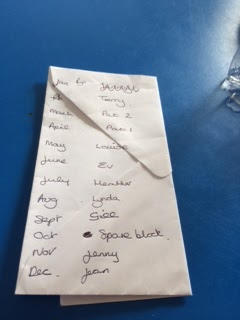 Jan
Terry
March Pat 2
April Pat 1
May Louise
June Ev
July Heather
Aug Lynda
Sept Gill
Oct Spare block.
Nov Jenny
Dec. Jean